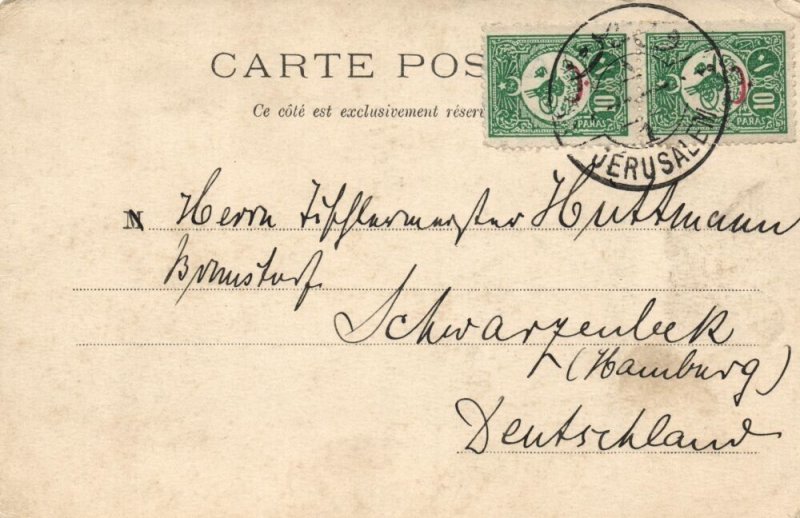 CARTE POS
Ce côté est exclusivement réser
10 PARAS ١٠
10 PARAS ١٠
1
JERUSALEM
N
Herrn Tischlermeister Huttmann
Schwarzenbeck
(Hamburg)
Deutschland